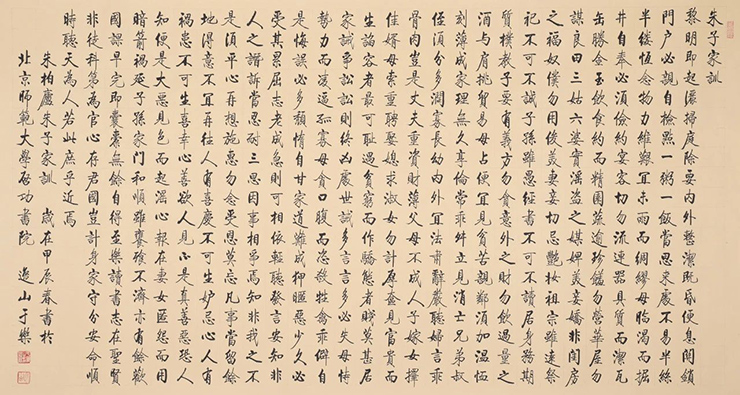 朱子家訓
黎明即起灑掃庭除要內外整潔既昏便息關鎖
門戶必親自檢點一粥一飯當思來處不易半絲
半縷恆念物力維艱宜未雨而綢繆毋臨渴而掘
井自奉必須儉約宴客切勿流連器具質而潔瓦
缶勝金玉飲食約而精園蔬逾珍饈勿營華屋勿
謀良田三姑六婆實淫盜之媒婢美妾嬌非閨房
之福奴僕勿用俊美妻妾切忌艷妝祖宗雖遠祭
祀不可不誠子孫雖愚經書不可不讀居身務期
質樸教子要有義方勿貪意外之財勿飲過量之
酒與肩挑貿易毋占便宜見貧苦親鄰須加溫恤
刻薄成家理無久享倫常乖舛立見消亡兄弟叔
侄須分多潤寡長幼內外宜法肅辭嚴聽婦言乖
骨肉豈是丈夫重資財薄父母不成人子嫁女擇
佳婿毋索重聘娶媳求淑女勿計厚奩見富貴而
生諂容者最可恥遇貧窮而作驕態者賤莫甚居
家誡爭訟訟則終凶處世誡多言言多必失毋恃
勢力而凌逼孤寡毋貪口腹而恣殺牲禽乖僻自
是悔誤必多頹惰自甘家道難成狎暱惡少久必
受其累屈志老成急則可相依輕聽發言安知非
人之譖訴當忍耐三思因事相爭焉知非我之不
是須平心再想施惠勿念受恩莫忘凡事當留餘
地得意不宜再往人有喜慶不可生妒忌心人有
禍患不可生喜幸心善欲人見不是真善惡恐人
知便是大惡見色而起淫心報在妻女匿怨而用
暗箭禍延子孫家門和順雖饔飧不濟亦有餘歡
國課早完即囊橐無餘自得至樂讀書志在聖賢
非徒科第為官心存君國豈計身家守分安命順
時聽天為人若此庶乎近焉
朱柏廬朱子家訓 歲在甲辰春書於
北京師範大學啟功書院 山于樂